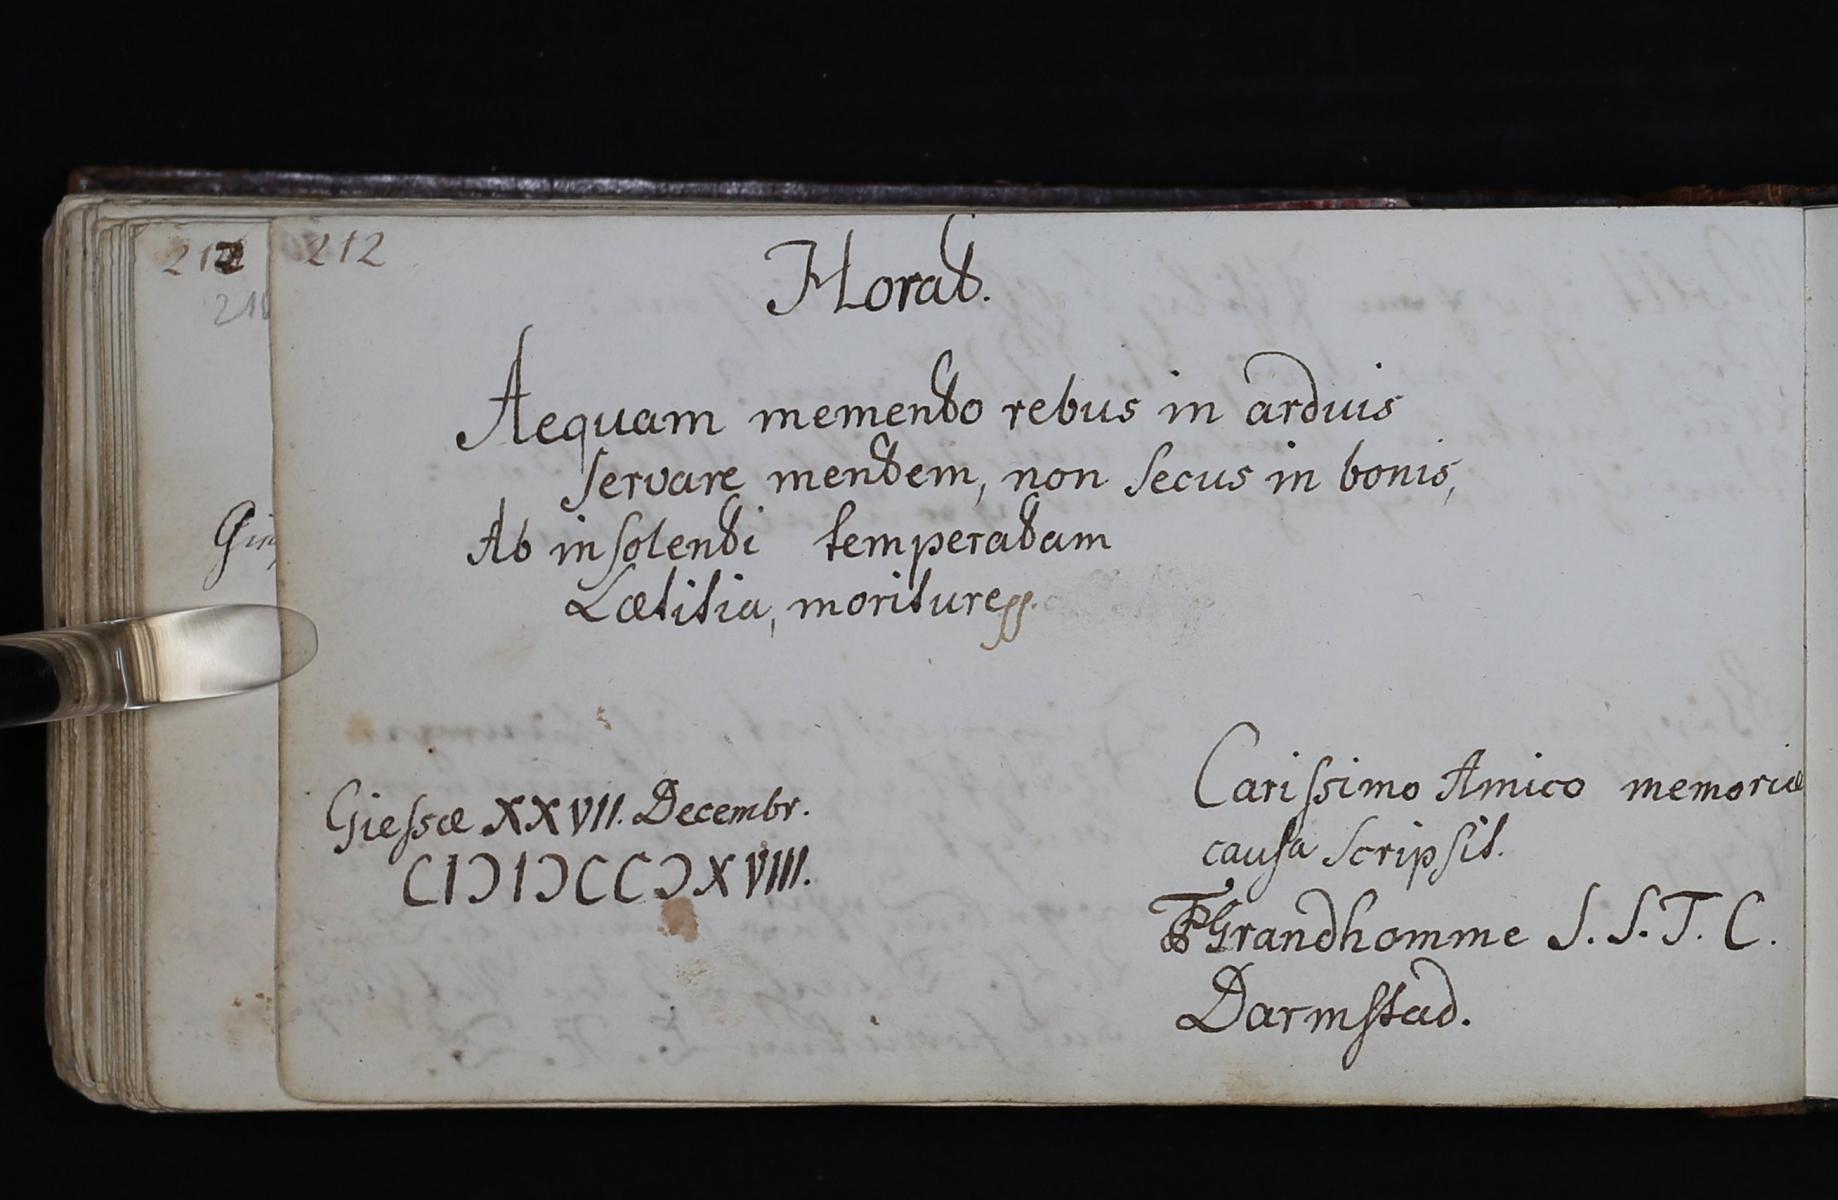 212
212
Horat.
Aequam memento rebus in arduis
servare mentem, non secus in bonis,
Ab insolenti temperatam
Lætitia, moriture
Giessæ XXVII. Decembr.
CIƆIƆCCƆXVIII.
Carissimo Amico memoriæ
causa scripsit.
Grandhomme S. S. T. C.
Darmstad.